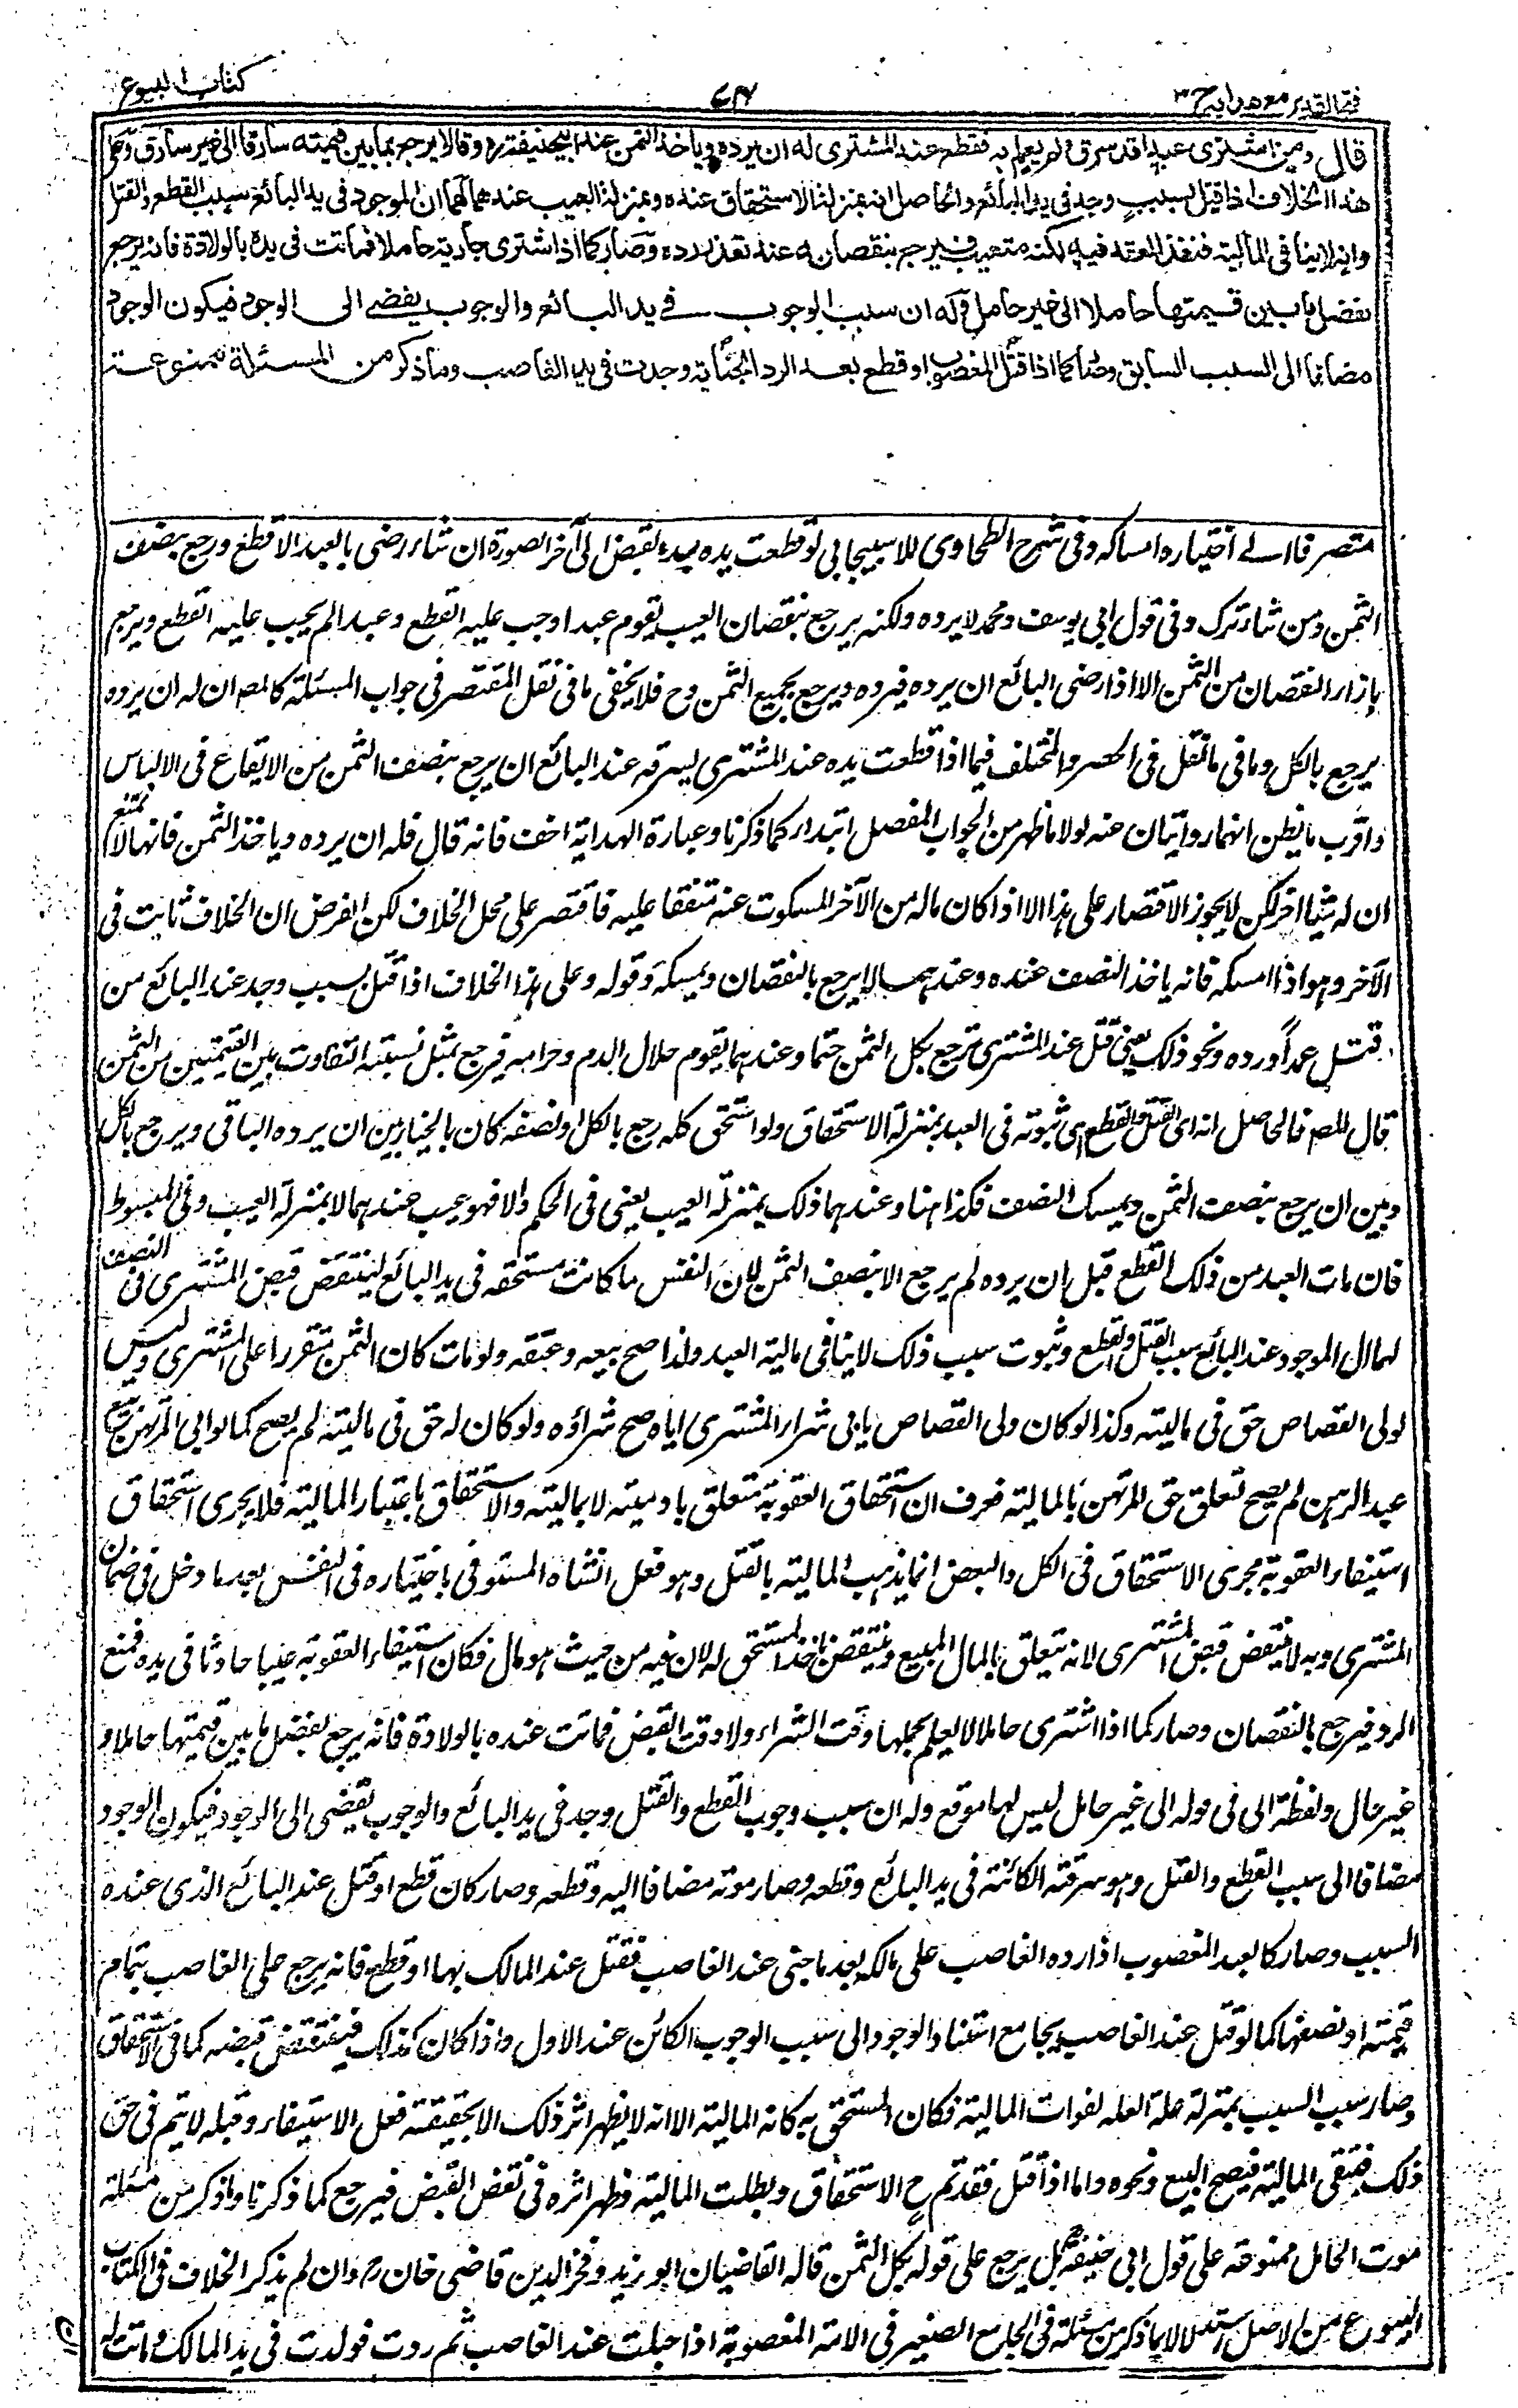 فتح القدير مع هدايه ج ٣
كتاب البيوع
قال ومن اشترى عبدا قد سرق ولم يعلم به فقطع عند المشترى له ان يرده وياخذ الثمن عند ابيحنيفة رح وقالا يرجع بما بين قيمته سارقا الى غير سارق وعلى
هذا الخلاف اذا قتل بسبب وجد فى يد البائع والحاصل انه بمنزلة الاستحقاق عنده وبمنزلة العيب عندهما لهما ان الموجود فى يد البائع سبب القطع والقتل
وانه لا ينافى المالية فنفذ العقد فيه لكنه متعيب فيرجع بنقصانه عند تعذر رده وصار كما اذا اشترى جارية حاملا فماتت فى يده بالولادة فانه يرجع
بفضل ما بين قيمتها حاملا الى غير حامل وله ان سبب الوجوب فى يد البائع والوجوب يفضى الى الوجود فيكون الوجود
مضافا الى السبب السابق وصار كما اذا قتل المغصوب او قطع بعد الرد بجناية وجدت فى يد الغاصب وما ذكر من المسئلة ممنوعة
متصرفا الے اختياره امساكه وفى شرح الطحاوى للاسبيجابى لو قطعت يده بيده القبض الى آخر الصورة ان شاء رضى بالعبد الاقطع ورجع بنصف
الثمن ومن شاء ترك وفى قول ابى يوسف ومحمد لا يرده ولكنه يرجع بنقصان العيب يقوم عبدا وجب عليه القطع وعبدا لم يجب عليه القطع ويرجع
بازاء النقصان من الثمن الا اذا رضى البائع ان يرده فيرده ويرجع بجميع الثمن وح فلا يخفى ما فى نقل المقتصر فى جواب المسئلة كالمص ان له ان يرده
يرجع بالكل وما فى ما نقل فى الحصر والمختلف فيما اذا قطعت يده عند المشترى بسرقه عند البائع ان يرجع بنصف الثمن من الايقاع فى الالباس
واقرب ما يظن انهما روايتان عنه لولا ما ظهر من الجواب المفصل ابتداء كما ذكرنا وعبارة الهداية اخف فانه قال فله ان يرده وياخذ الثمن فانها لا تمنع
ان له شيئا آخر لكن لا يجوز الاقتصار على هذا الا اذا كان ماله من الآخر المسكوت عنه متفقا عليه فاقتصر على محل الخلاف لكن الفرض ان الخلاف ثابت فى
الآخر وهو اذا امسكه فانه ياخذ النصف عنده وعندهما لا يرجع بالنقصان ويمسكه وقوله وعلى هذا الخلاف اذا قتل بسبب وجد عند البائع من
قتل عمدا وردة ونحو ذلك يعنى قتل عند المشترى يرجع بكل الثمن حتما وعندهما يقوم حلال الدم وحرامه فيرجع بمثل نسبة التفاوت بين القيمتين من الثمن
قال المص فالحاصل انه اى القتل والقطع اى ثبوته فى العبد بمنزلة الاستحقاق ولو استحق كله رجع بالكل او نصفه كان بالخيار بين ان يرده الباقى ويرجع بالكل
وبين ان يرجع بنصف الثمن ويمسك النصف فكذا هنا وعندهما ذلك بمنزلة العيب يعنى فى الحكم والا فهو عيب عندهما لا بمنزلة العيب وفى المبسوط
فان مات العبد من ذلك القطع قبل ان يرده لم يرجع الا بنصف الثمن لان النفس ما كانت مستحقه فى يد البائع لينتقض قبض المشترى فى النصف
لهما ان الموجود عند البائع سبب القتل والقطع وثبوت سبب ذلك لا ينافى مالية العبد ولذا صح بيعه وعتقه ولو مات كان الثمن متقررا على المشترى وليس
لولى القصاص حق فى ماليته وكذا لو كان ولى القصاص يابى شراء المشترى اياه صح شراؤه ولو كان له حق فى ماليته لم يصح كما لو ابى المرتهن بيع
عبد الرهن لم يصح لتعلق حق المرتهن بالمالية فعرف ان استحقاق العقوبة متعلق بادميته لا بماليته والاستحقاق باعتبار المالية فلا يجرى استحقاق
استيفاء العقوبة مجرى الاستحقاق فى الكل والبعض انما يذهب المالية بالقتل وهو فعل انشاه المستوفى باختياره فى النفس بعد ما دخل فى ضمان
المشترى وبه لا ينتقض قبض المشترى لانه يتعلق بالمال المبيع وينتقض باخذ المستحق له لان فيه من حيث هو مال فكان استيفاء العقوبة عيبا حادثا فى يده فمنع
الرد فيرجع بالنقصان وصار كما اذا اشترى حاملا لا يعلم بحملها وقت الشراء ولا وقت القبض فماتت عنده بالولادة فانه يرجع بفضل ما بين قيمتها حاملا و
غير حامل ولفظة الى فى قوله الى غير حامل ليس لها موقع وله ان سبب وجوب القطع والقتل وجد فى يد البائع والوجوب يفضى الى الوجود فيكون الوجود
مضافا الى سبب القطع والقتل وهو سرقته الكائنة فى يد البائع وقطعه وصار موته مضافا اليه وقطعه وصار كان قطع او قتل عند البائع الذى عنده
السبب وصار كالعبد المغصوب اذا رده الغاصب على مالكه بعد ما جنى عند الغاصب فقتل عند المالك بها او قطع فانه يرجع على الغاصب بتمام
قيمته او نصفها كما لو قتل عند الغاصب بجامع استناد الوجود الى سبب الوجوب الكائن عند الاول واذا كان كذلك فينتقض قبضه كما فى الاستحقاق
وصار سبب السبب بمنزلة علة العله لفوات المالية فكان المستحق به كانه المالية الا انه لا يظهر اثر ذلك الا بحقيقة فعل الاستيفاء وقبله لا يتم فى حق
ذلك فتبقى المالية فيصح البيع ونحوه واما اذا قتل فقد تم ح الاستحقاق وبطلت المالية فظهر اثره فى نقض القبض فيرجع كما ذكرنا وما ذكر من مسئلة
موت الحامل ممنوعة على قول ابى حنيفة رح بل يرجع على قوله بكل الثمن قاله القاضيان ابو زيد وفخر الدين قاضى خان رح وان لم يذكر الخلاف فى الكتاب
البيوع من الاصل استدلالا بما ذكر من مسئلة فى الجامع الصغير فى الامة المغصوبة اذا حبلت عند الغاصب ثم ردت فولدت فى يد المالك وماتت له